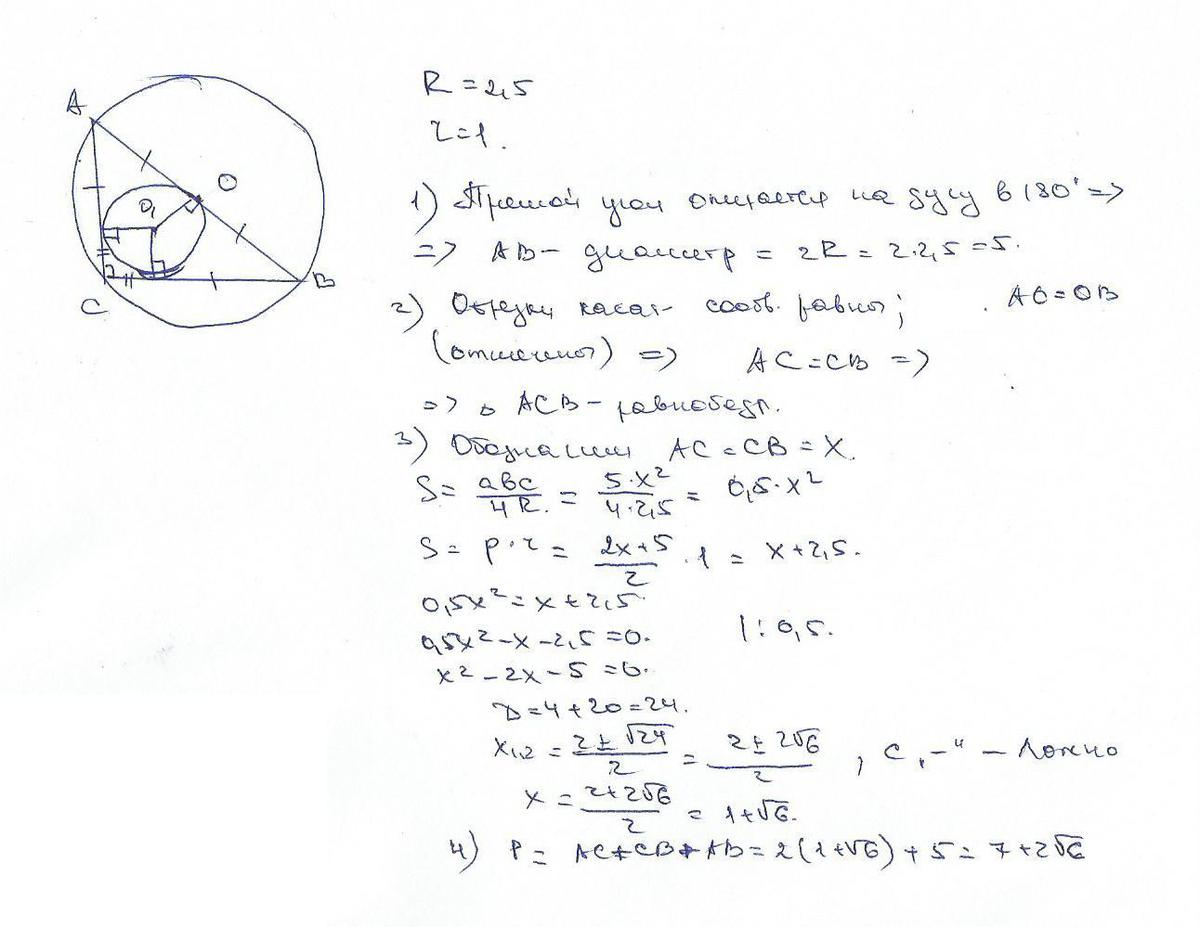 A
O
O₁
C
B
R = 2,5
r = 1.
1) Прямой угол опирается на дугу в 180° =>
=> AB - диаметр = 2R = 2·2,5 = 5.
2) Отрезки касат- соотв. равны; AO = OB
(отмечены) => AC = CB =>
=> △ ACB - равнобедр.
3) Обозначим AC = CB = X.
S = abc/4R = 5·x²/4·2,5 = 0,5·x²
S = p·r = (2x+5)/2 · 1 = x+2,5.
0,5x² = x+2,5.
0,5x² - x - 2,5 = 0. |: 0,5.
x² - 2x - 5 = 0.
D = 4 + 20 = 24.
x₁,₂ = (2 ± √24)/2 = (2 ± 2√6)/2 , с „-“ - ложно
x = (2+2√6)/2 = 1+√6.
4) P = AC + CB + AB = 2(1+√6) + 5 = 7+2√6